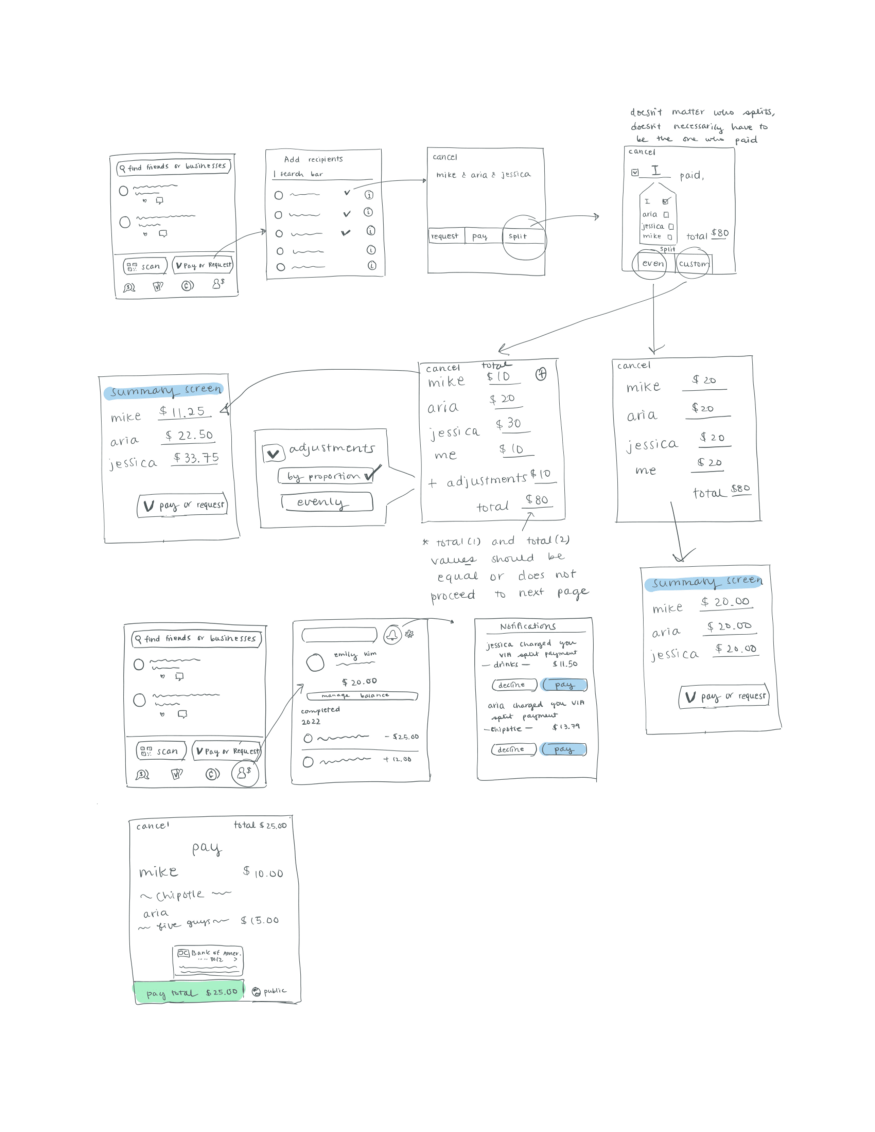 doesn't matter who splits,
doesn't necessarily have to
be the one who paid
find friends or businesses
scan
V Pay or Request
Add recipients
search bar
cancel
mike & aria & jessica
request
pay
split
cancel
I paid.
I
aria
jessica
mike
total $80
split
even
custom
summary screen
mike $11.25
aria $22.50
jessica $33.75
V pay or request
adjustments
by proportion
evenly
cancel total
mike $10
aria $20
jessica $30
me $10
+ adjustments $10
total $80
* total(1) and total(2)
values should be
equal or does not
proceed to next page
cancel
mike $20
aria $20
jessica $20
me $20
total $80
summary screen
mike $20.00
aria $20.00
jessica $20.00
V pay or request
find friends or businesses
scan
V Pay or Request
emily kim
$20.00
manage balance
completed
2022
- $25.00
+ 12.00
Notifications
jessica charged you
VIA split payment
— drinks — $11.50
decline
pay
aria charged you VIA
split payment
— Chipotle — $13.79
decline
pay
cancel total $25.00
pay
mike $10.00
~ Chipotle ~
aria
~ five guys ~ $15.00
Bank of Amer.
pay total $25.00
public